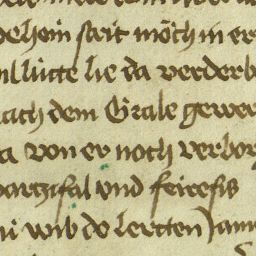 dehein strit möch in er
lütte hie da verderb
nach dem Grale gewer
da von er noch verbor
parzifal vnd feirefis
wib do lertten Jam